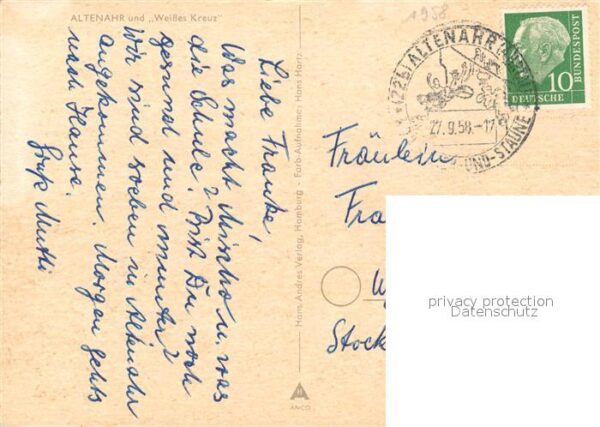 ALTENAHR und „Weißes Kreuz"
Liebe Frauke,
Was macht Mischa u. was
die Schule? Bist Du noch
gesund und munter?
Wir sind soeben in Altenahr
angekommen. Morgen gehts
nach Hause.
Gruß Mutti
Hans Andres Verlag, Hamburg - Farb-Aufnahme: Hans Hartz
ANCO
1958
(22b) ALTENAHR
27.9.58.-17
UND-STAUNE
10
DEUTSCHE
BUNDESPOST
Fräulein
Fra
Stock
privacy protection
Datenschutz